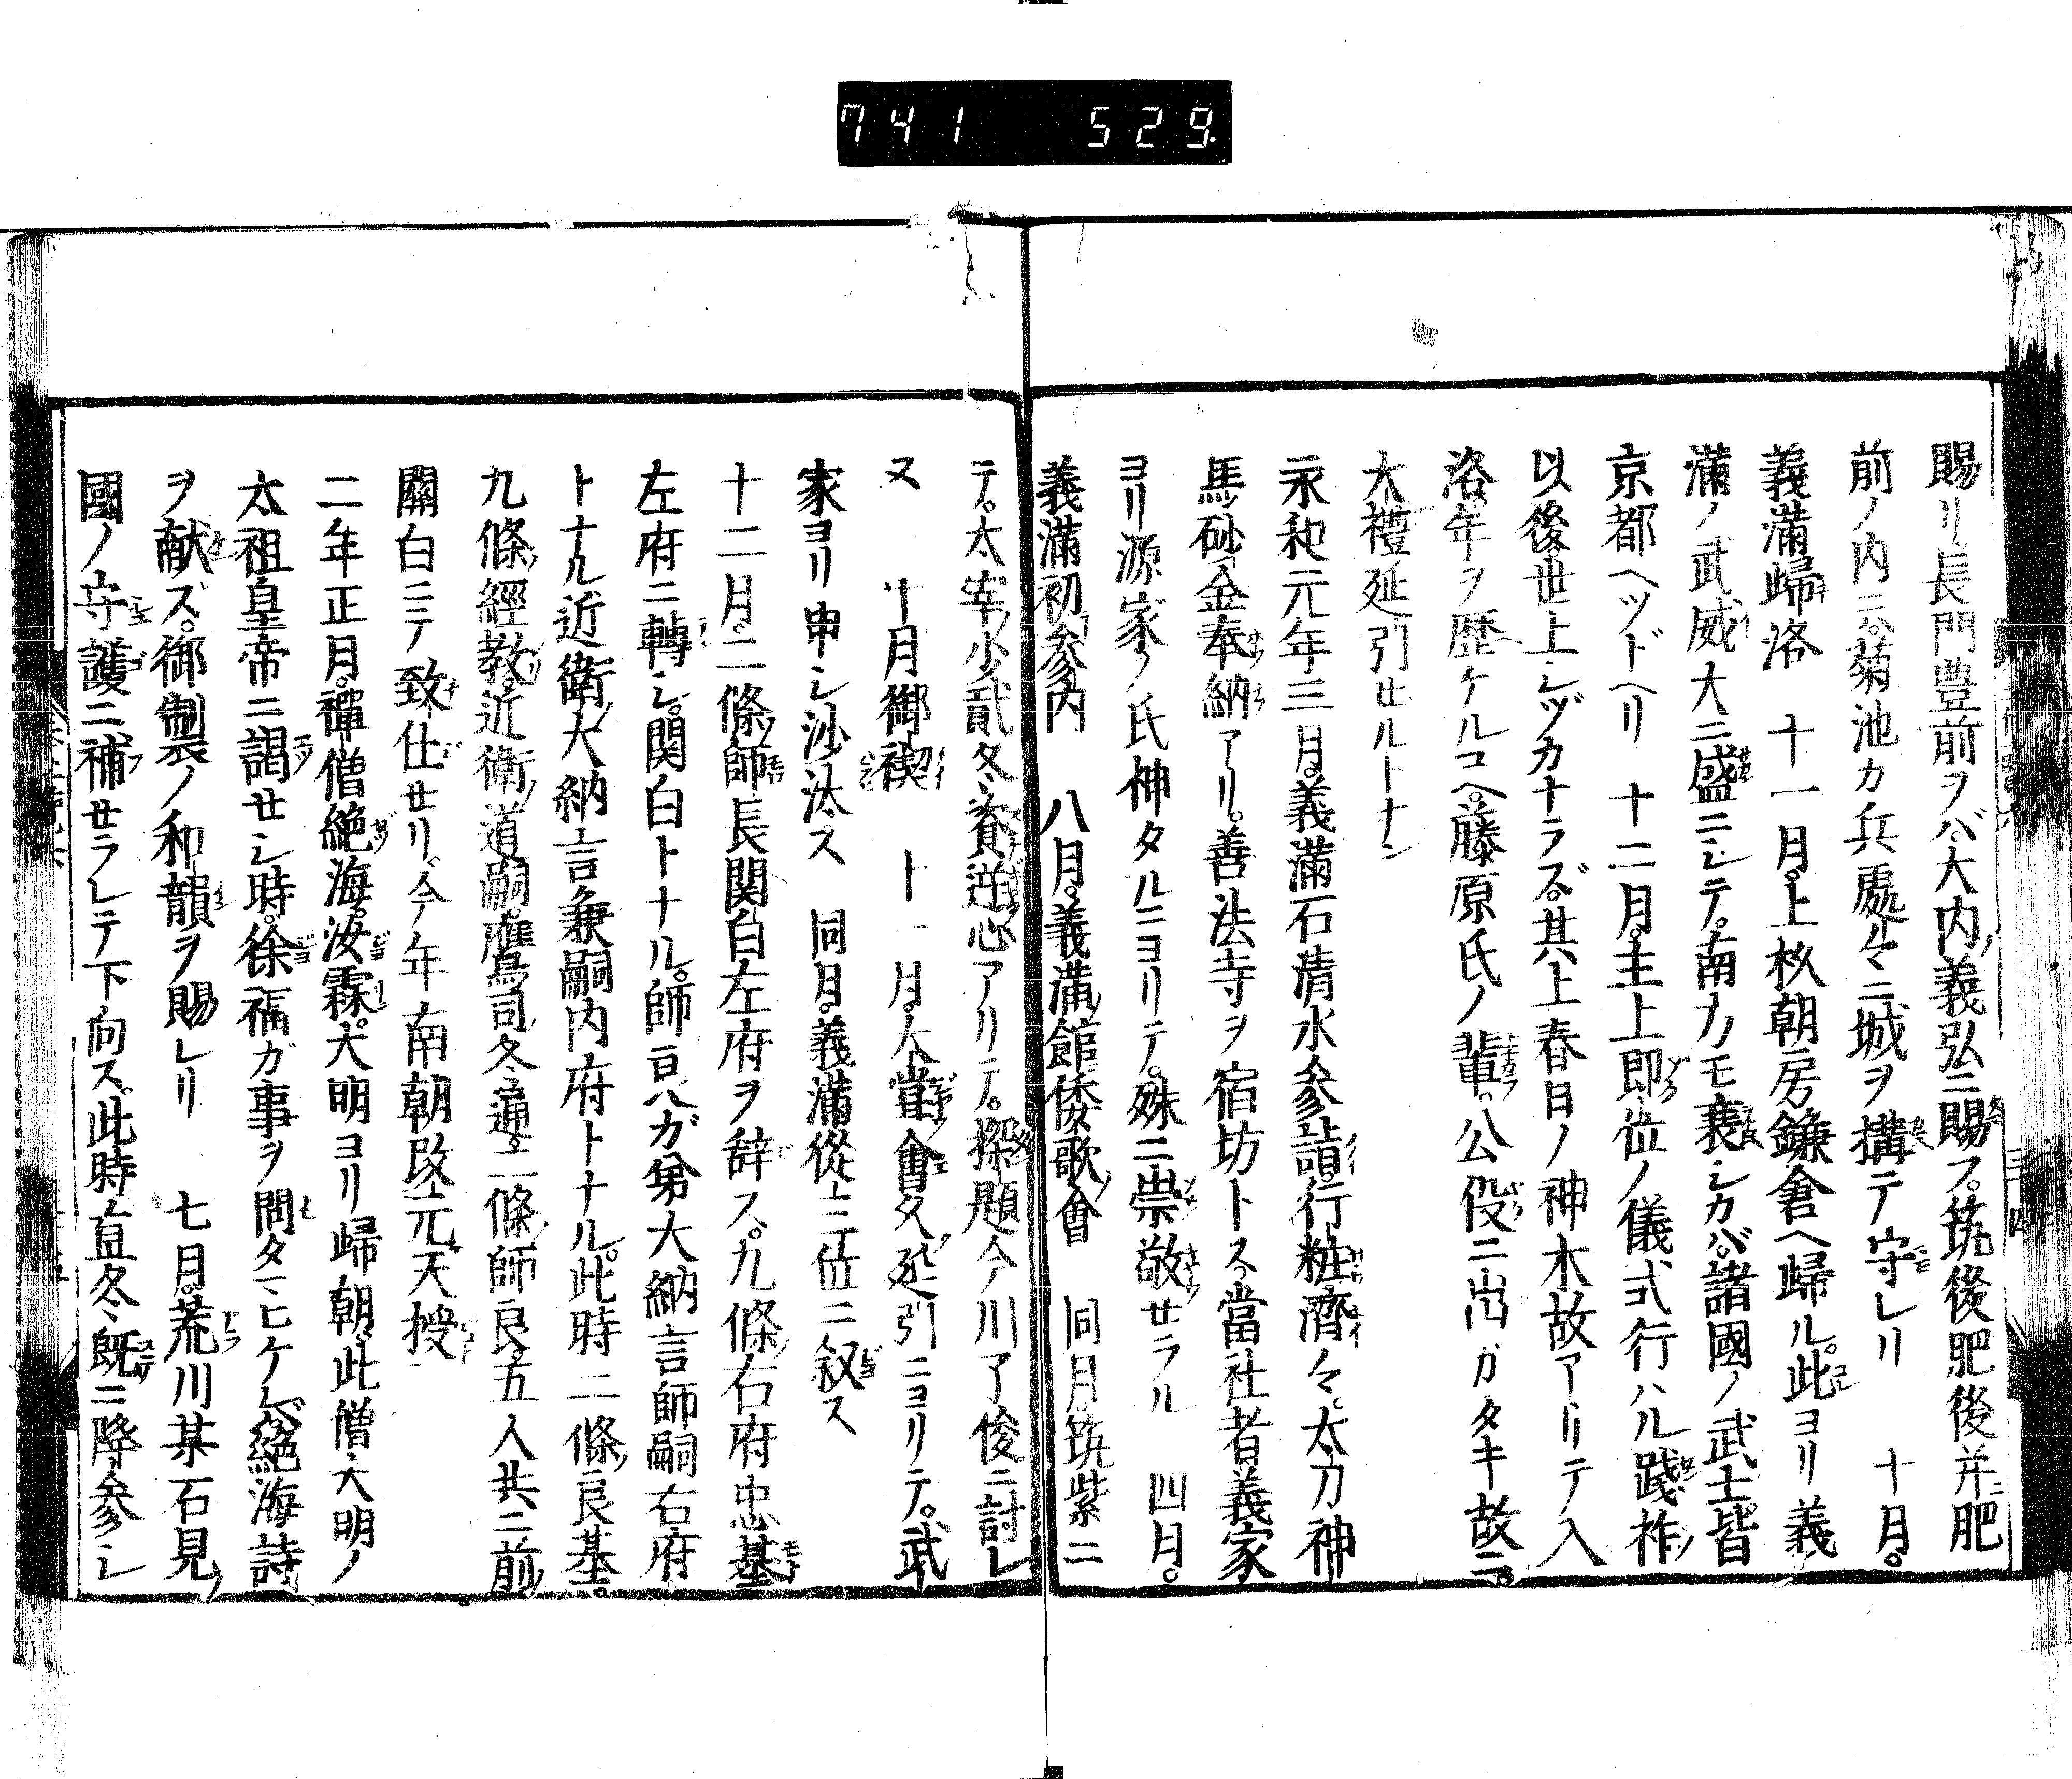 741 529
賜リ長門豊前ヲバ大内義弘ニ賜フ。筑後肥後并肥
前ノ内ニ。菊池カ兵處々ニ城ヲ搆テ守レリ 十月。
義滿歸洛 十一月。上杦朝房鎌倉ヘ歸ル。此ヨリ義
滿ノ武威大ニ盛ニシテ。南方モ衰シカバ。諸國ノ武士皆
京都ヘツドヘリ 十二月。主上即位ノ儀式行ハル踐祚
以後。世上シヅカナラズ。其上春日ノ神木故アリテ入
洛。年ヲ歴ケルユヘ。藤原氏ノ輩。公役ニ出ガタキ故ニ。
大禮延引セルトナン
永和元年三月。義滿石清水參詣。行粧濟々。太刀神
馬砂金奉納アリ。善法寺ヲ宿坊トス。當社者義家
ヨリ源家ノ氏神タルニヨリテ。殊ニ崇敬セラル 四月。
義滿初參内 八月。義滿館倭歌會 同月。筑紫ニ
テ。太宰少貳冬資逆心アリテ。探題今川了俊ニ討レ
ヌ 十月御禊 十一月。大嘗會久延引ニヨリテ。武
家ヨリ申シ沙汰ス 同月。義滿從三位ニ叙ス
十二月。二條師長関白左府ヲ辞ス。九條右府忠基
左府ニ轉シ。関白トナル。師良ガ弟大納言師嗣右府
トナル近衛大納言兼嗣内府トナル。此時二條良基。
九條經教。近衛道嗣。鷹司冬通。二條師良。五人共ニ前
關白ニテ致仕セリ。今年南朝改元天授
二年正月。禪僧絶海。汝霖。大明ヨリ歸朝。此僧大明ノ
太祖皇帝ニ謁セシ時。徐福ガ事ヲ問タマヒケレバ。絶海詩
ヲ献ズ。御製ノ和韻ヲ賜レリ 七月。荒川某石見
國ノ守護ニ補セラレテ下向ス。此時直冬既ニ降參シ